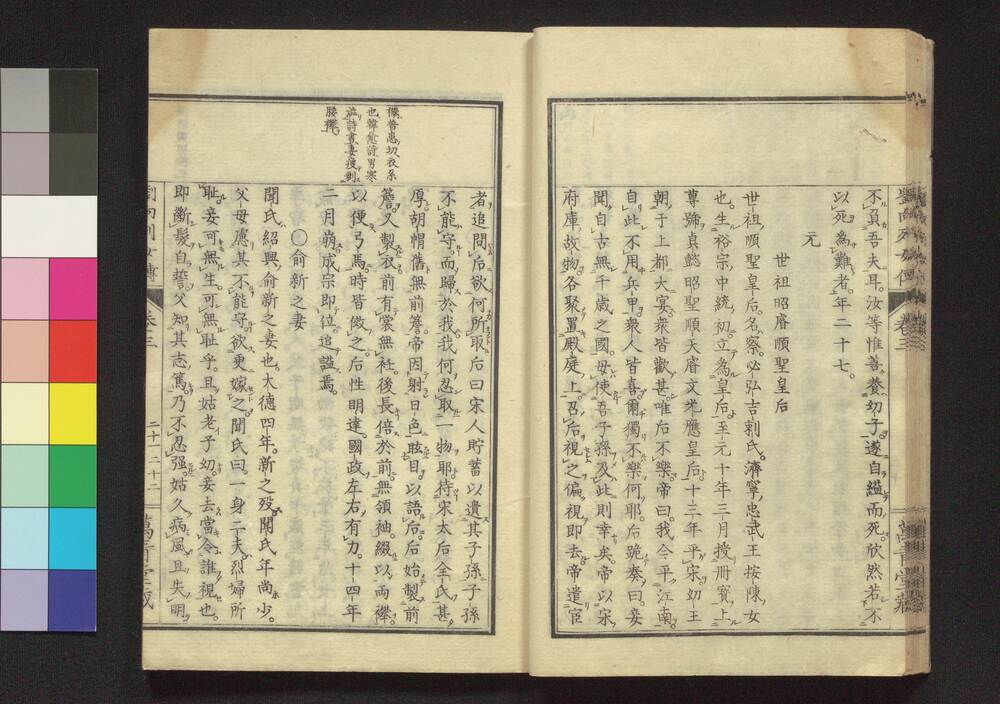 不負吾夫耳。汝等惟善養幼子。遂自縊而死。欣然若不
以死為難者。年二十七。
元
世祖昭睿順聖皇后
世祖順聖皇后。名察必弘吉剌氏。濟寧忠武王按陳女
也。生裕宗。中統初立為皇后。至元十年三月授冊寶上
尊號貞懿昭聖順天睿文光應皇后。十三年平宋。幼主
朝于上都大宴。衆皆歡甚。唯后不樂。帝曰。我今平江南。
自此不用兵甲。衆人皆喜。爾獨不樂何耶。后跪奏曰。妾
聞自古無千歲之國。毋使吾子孫及此則幸矣。帝以宋
府庫故物各聚置殿庭上。召后視之。偏視即去。帝遣臣
者追問后欲何所取。后曰宋人貯蓄以遺其子孫。子孫
不能守而歸於我。我何忍取一物耶。待宋太后全氏甚
厚。胡帽舊無前簷。帝因射日色眩目。以語后。后始製前
簷。又製衣前有裳無衽。後長倍於前。無領袖。綴以兩襻。
以便弓馬。時皆倣之。后性明達。國政左右有力。十四年
二月崩。成宗即位。追謚焉。
〇俞新之妻
聞氏紹興俞新之妻也。大德四年。新之歿。聞氏年尚少。
父母慮其不能守。欲更嫁之。聞氏曰。一身二夫。烈婦所
耻。妾可無生。可無耻乎。且姑老子幼。妾去當令誰視也。
即斷髮自誓。父知其志篤。乃不忍强。姑久病風且失明。
襻普患切衣系
也韓愈詩男寒
澁詩書妻瘦剩
腰襻
卷三
二十一 二十二
卷三